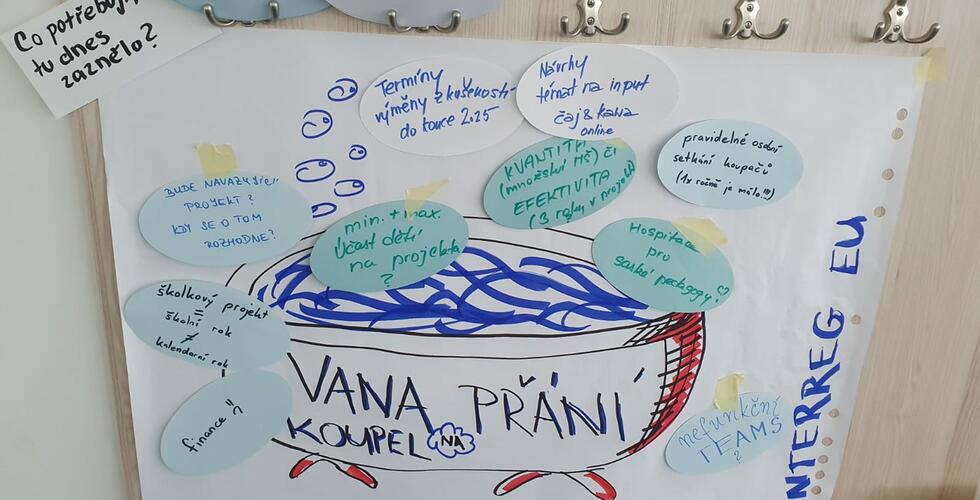 Co potřebuj
tu dnes
zaznělo?
Termíny
výměny zkušeností
do konce 2.25
Návrhy
témat na input
čaj & kawa
online
KVANTITA
(množství MŠ) či
EFEKTIVITA
(3 roky v projektu)
pravidelné osobní
setkání koupačů
(1x ročně je málo!!!)
BUDE NAVAZUJÍCÍ
PROJEKT?
KDY SE O TOM
ROZHODNE?
min. + max.
účast dětí
na projektu
?
Hospitace
pro
saské pedagogy!
školkový projekt
=
školní rok
≠
kalendarní rok
finance
VANA PŘÁNÍ
KOUPEL NA
nefunkční
TEAMS
?
INTERREG EU